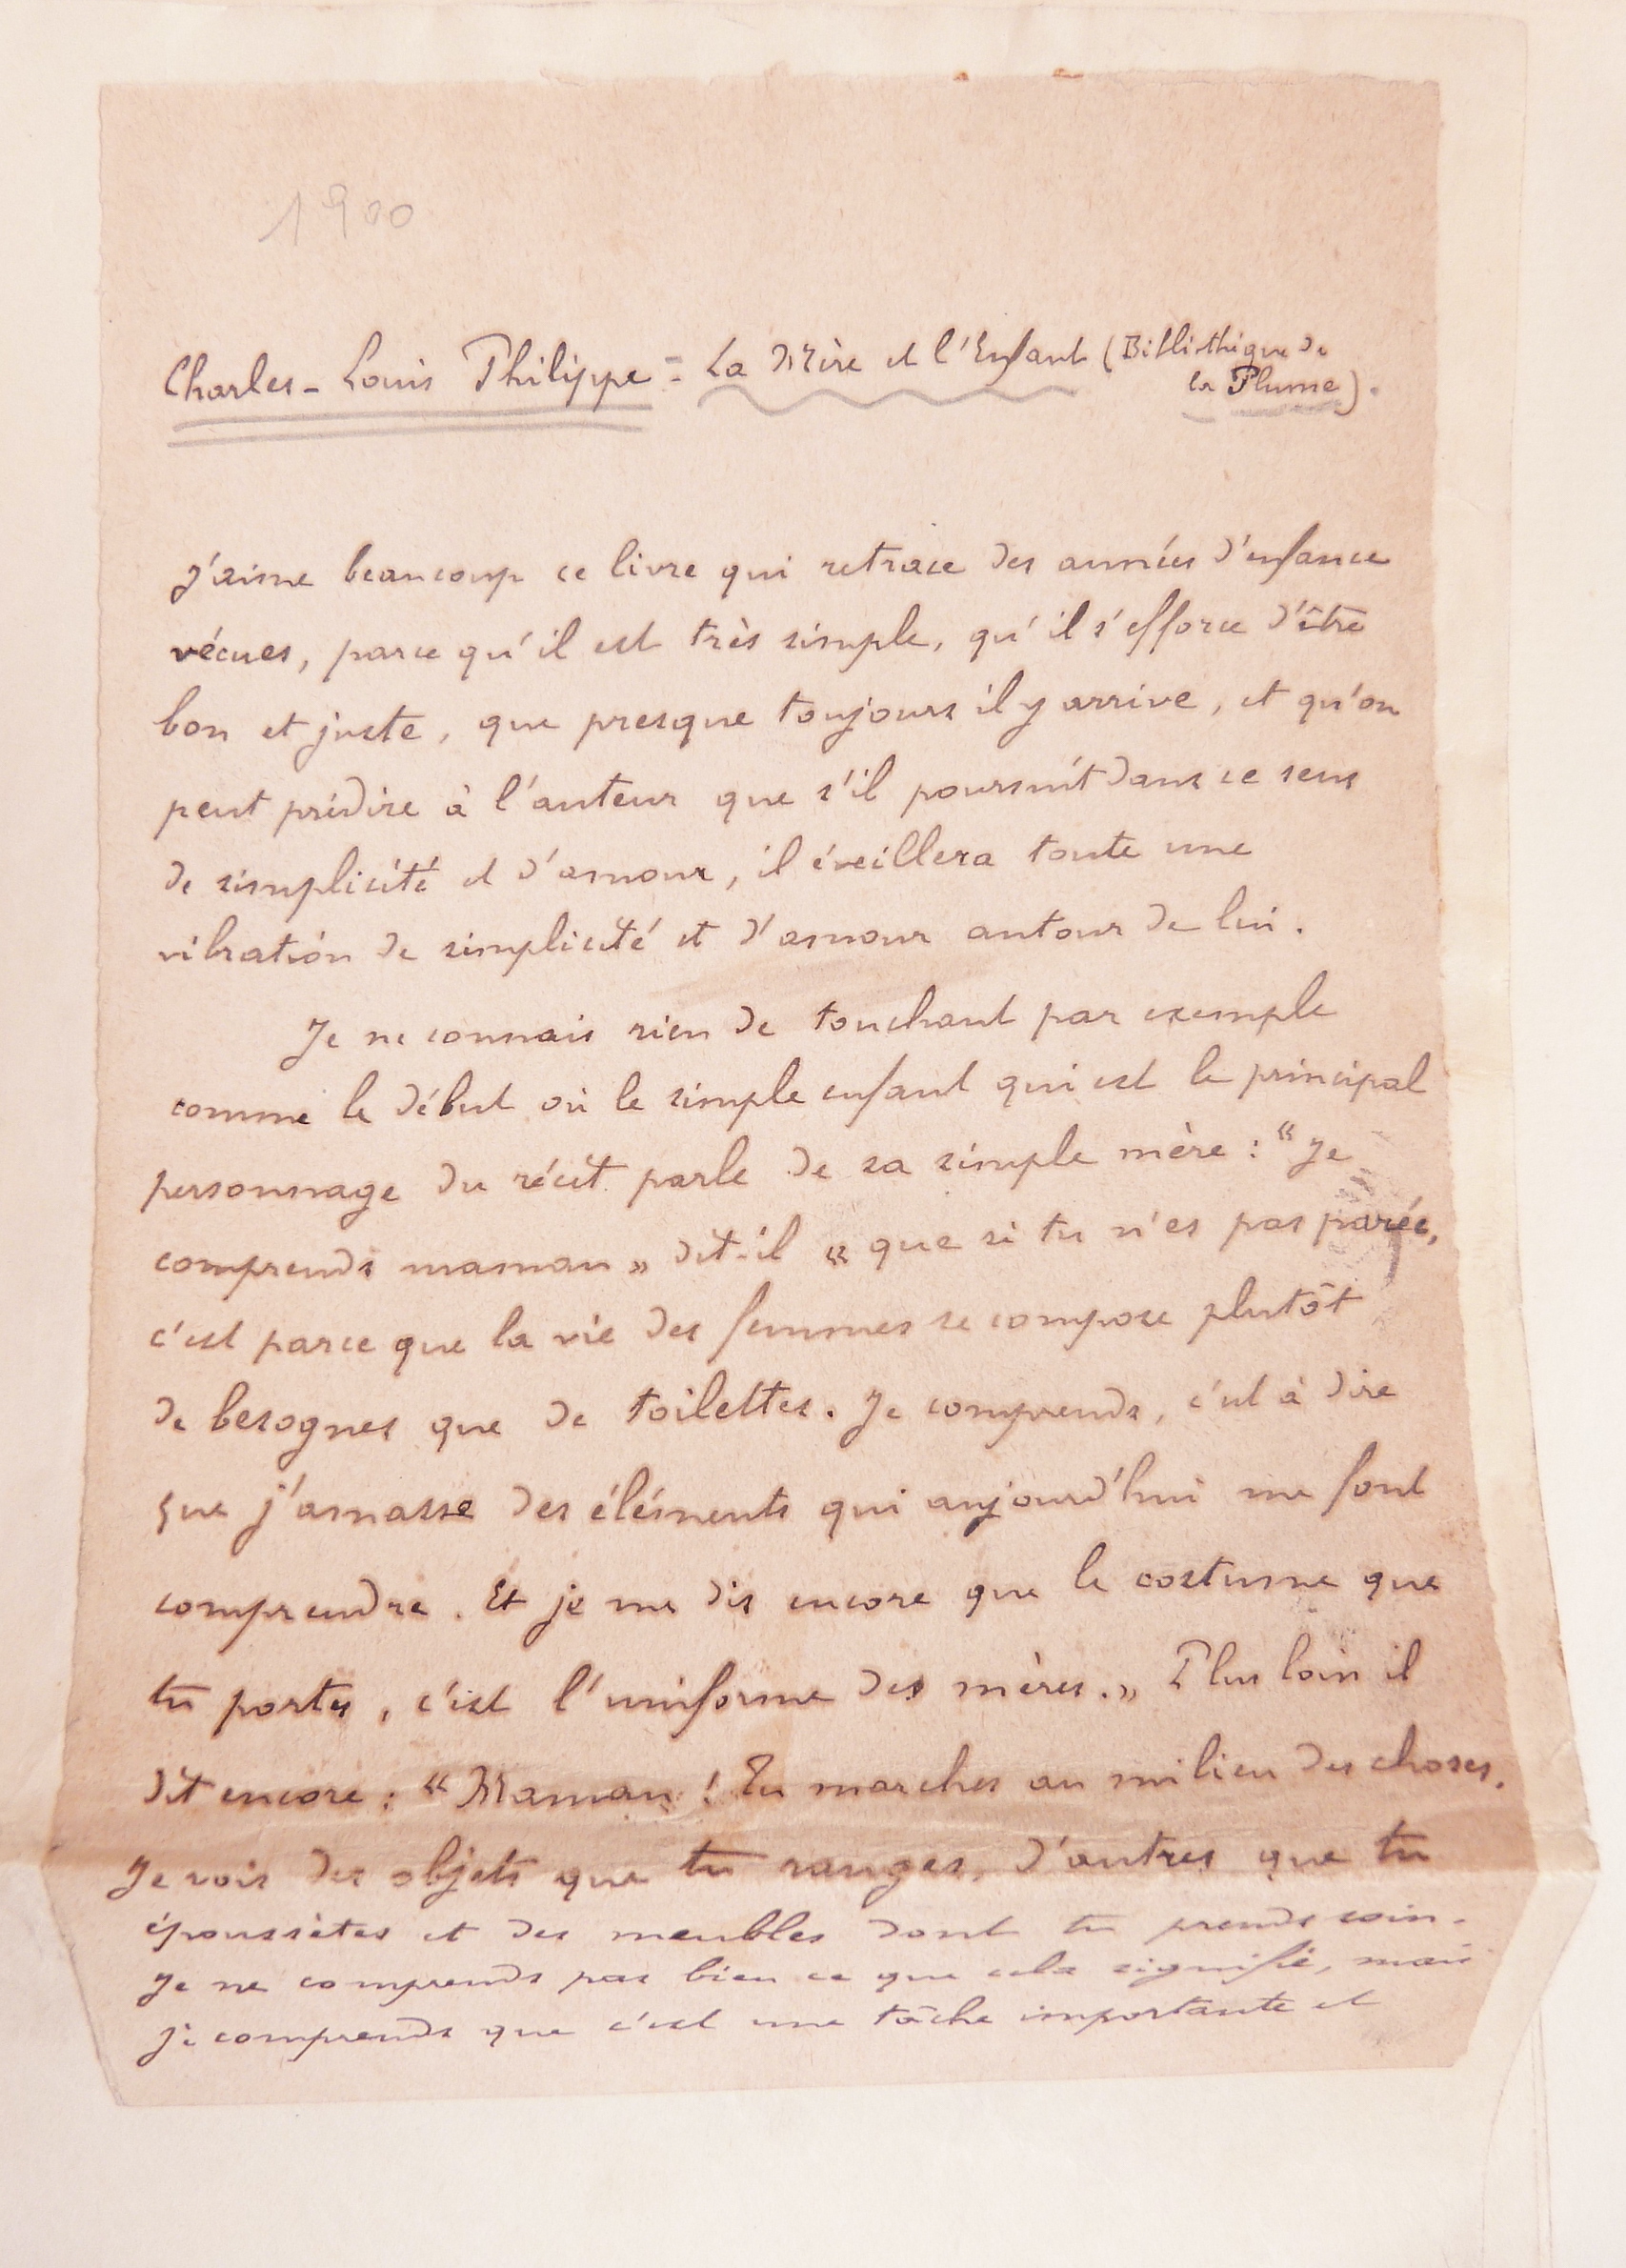 1900
Charles-Louis Philippe = La Mère et l'Enfant (Bibliothèque de
la Plume).
J'aime beaucoup ce livre qui retrace des années d'enfance
vécues, parce qu'il est très simple, qu'il s'efforce d'être
bon et juste, que presque toujours il y arrive, et qu'on
peut prédire à l'auteur que s'il poursuit dans ce sens
de simplicité et d'amour, il éveillera toute une
vibration de simplicité et d'amour autour de lui.
Je ne connais rien de touchant par exemple
comme le début où le simple enfant qui est le principal
personnage du récit parle de sa simple mère : "Je
comprends maman » dit-il « que si tu n'es pas parée,
c'est parce que la vie des femmes se compose plutôt
de besognes que de toilettes. Je comprends, c'est à dire
que j'amasse des éléments qui aujourd'hui me font
comprendre. Et je me dis encore que le costume que
tu portes, c'est l'uniforme des mères. » Plus loin il
dit encore : « Maman ! Tu marches au milieu des choses.
Je vois des objets que tu ranges, d'autres que tu
époussètes et des meubles dont tu prends soin.
Je ne comprends pas bien ce que cela signifie, mais
je comprends que c'est une tâche importante et